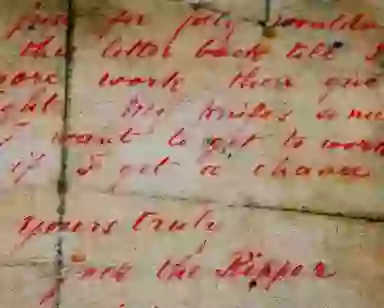 just for jolly wouldn
this letter back till I
more work then give
ght. My knife's so nice
I want to get to work
if I get a chance.
yours truly
Jack the Ripper